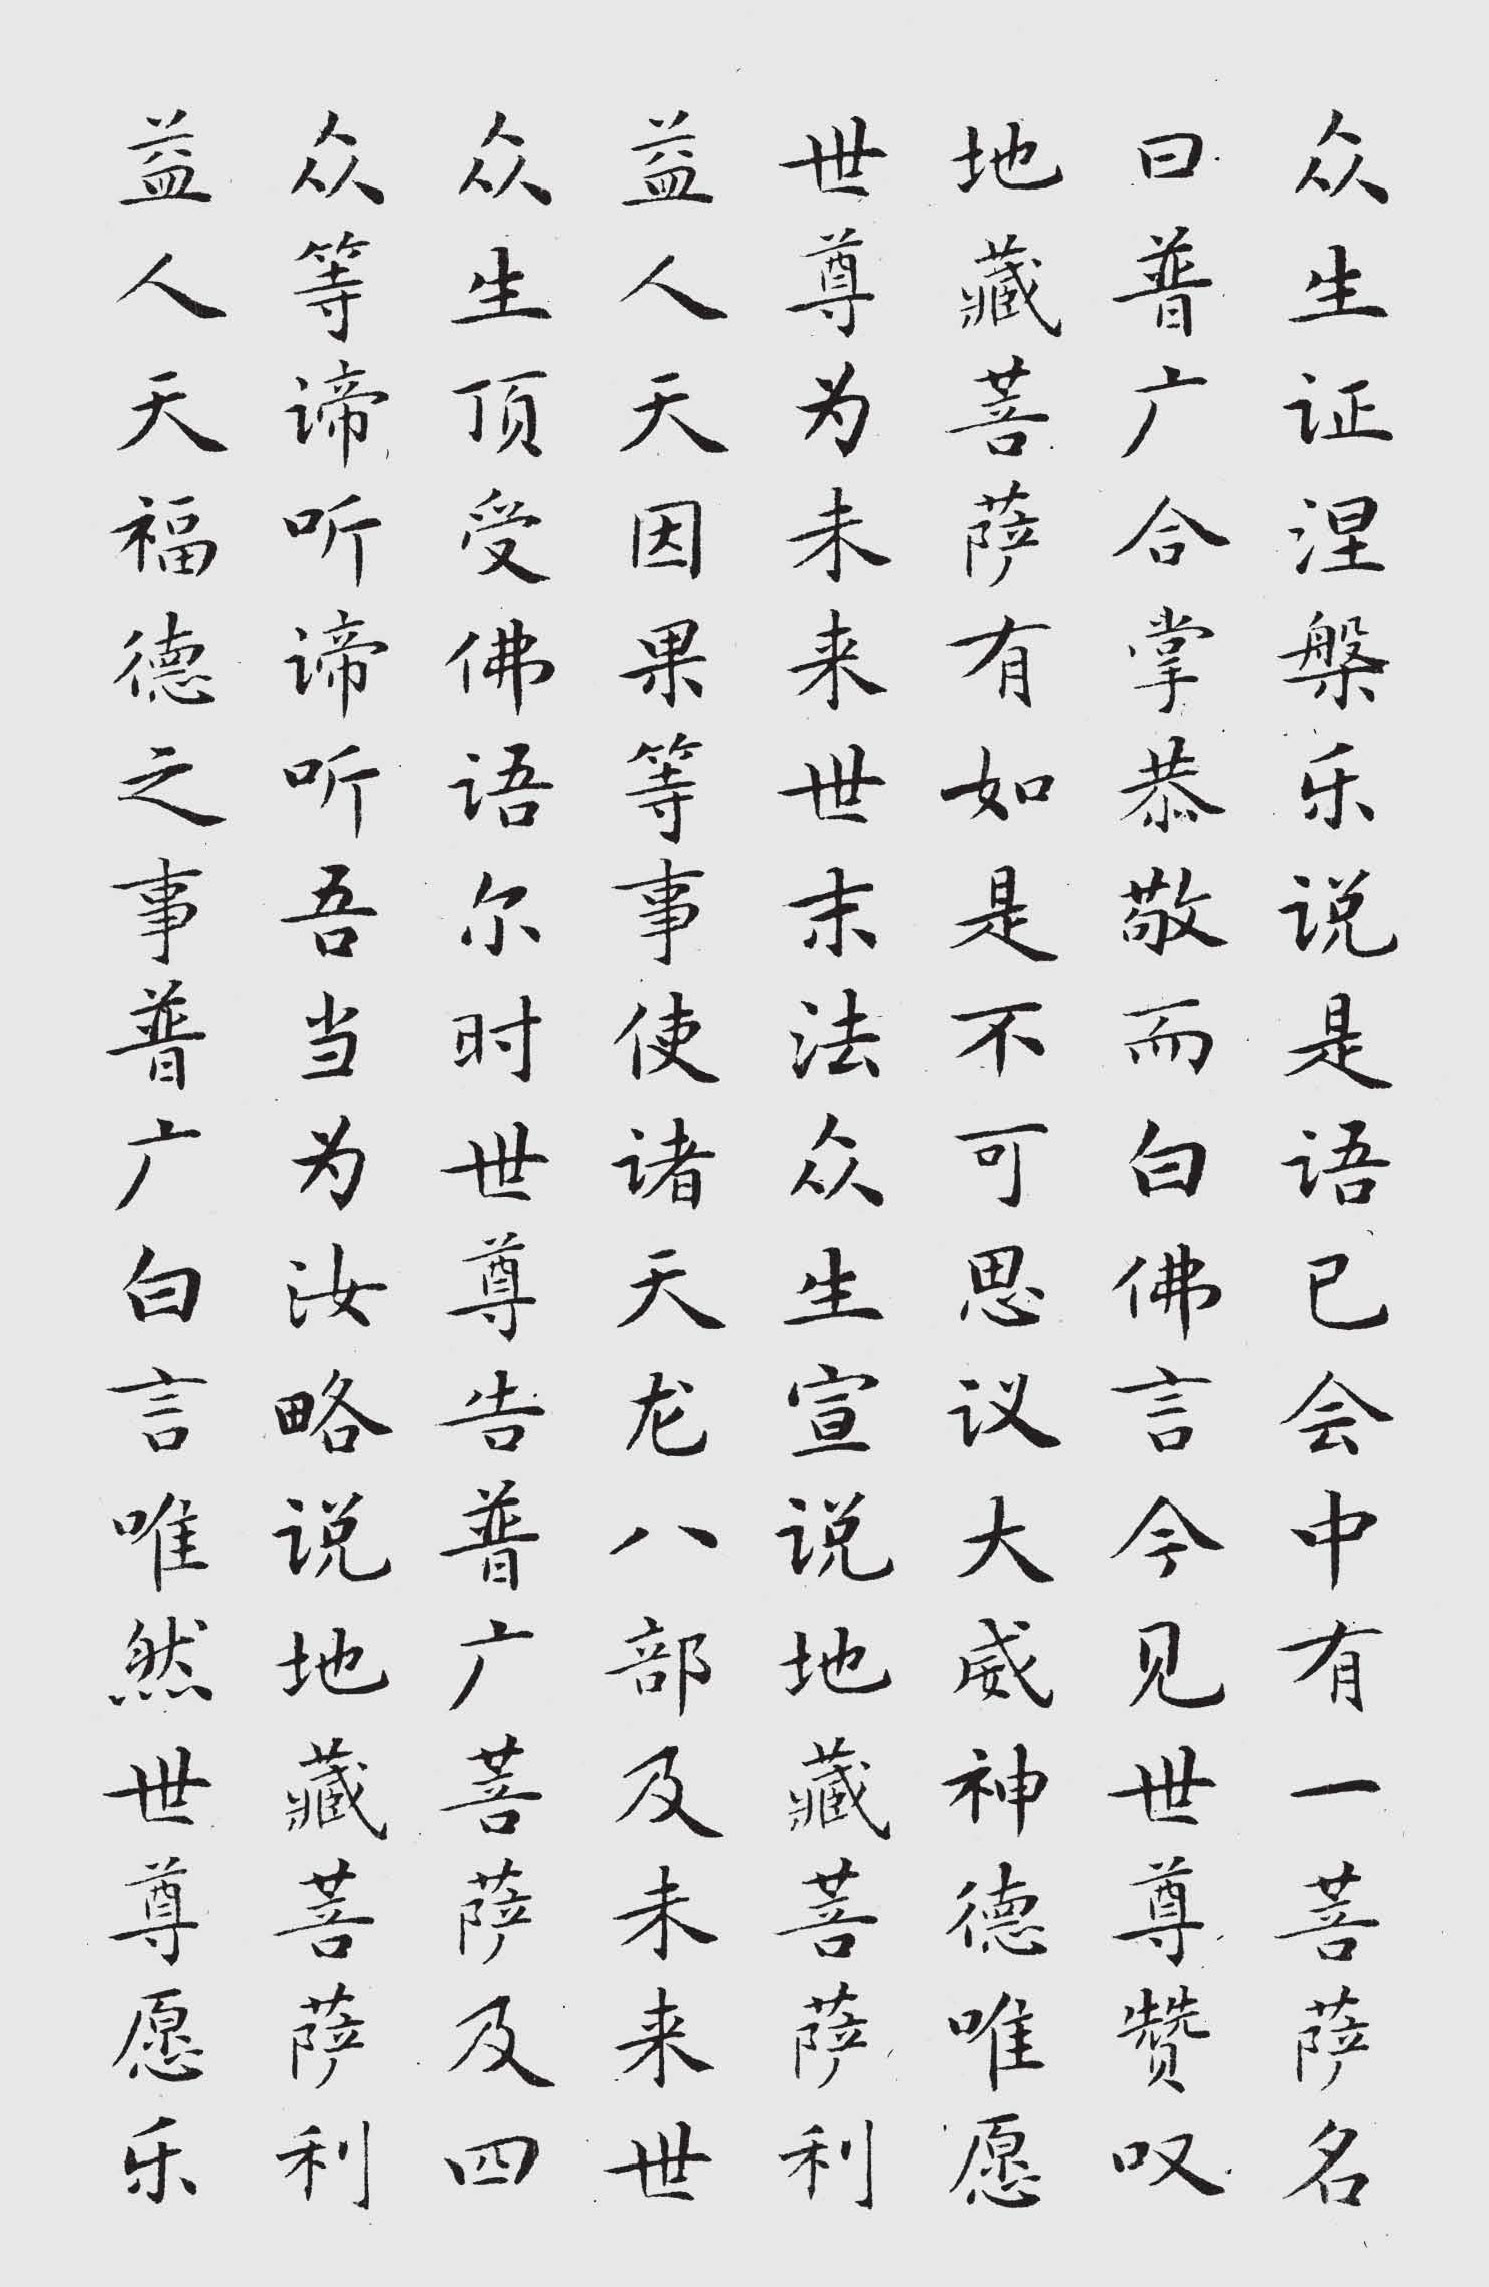 众生证涅槃乐说是语已会中有一菩萨名
曰普广合掌恭敬而白佛言今见世尊赞叹
地藏菩萨有如是不可思议大威神德唯愿
世尊为未来世末法众生宣说地藏菩萨利
益人天因果等事使诸天龙八部及未来世
众生顶受佛语尔时世尊告普广菩萨及四
众等谛听谛听吾当为汝略说地藏菩萨利
益人天福德之事普广白言唯然世尊愿乐